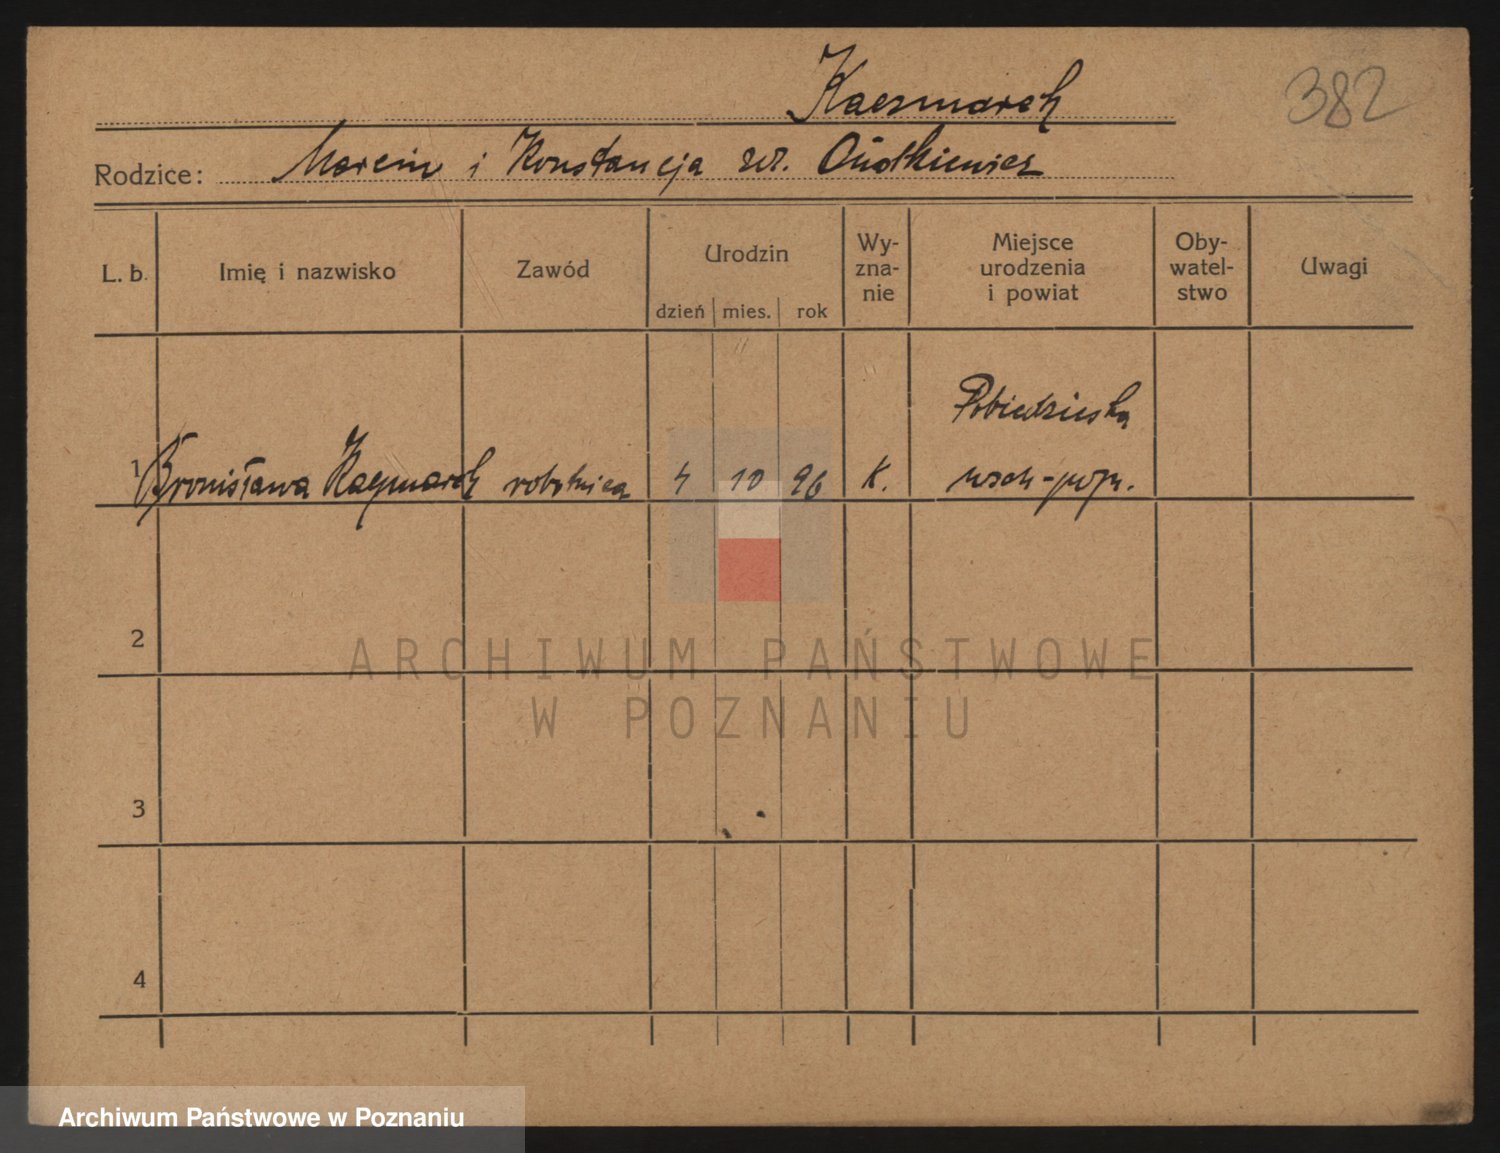 Kaczmarek
382
Rodzice: Marcin i Konstancja
L. b.
Imię i nazwisko
Zawód
Urodzin
dzień
mies.
rok
Wy-
zna-
nie
Miejsce
urodzenia
i powiat
Oby-
watel-
stwo
Uwagi
1
Bronisława Kaczmarek
robotnica
4
10
96
K.
Pobiedziska
2
3
4
ARCHIWUM PAŃSTWOWE
W POZNANIU
Archiwum Państwowe w Poznaniu